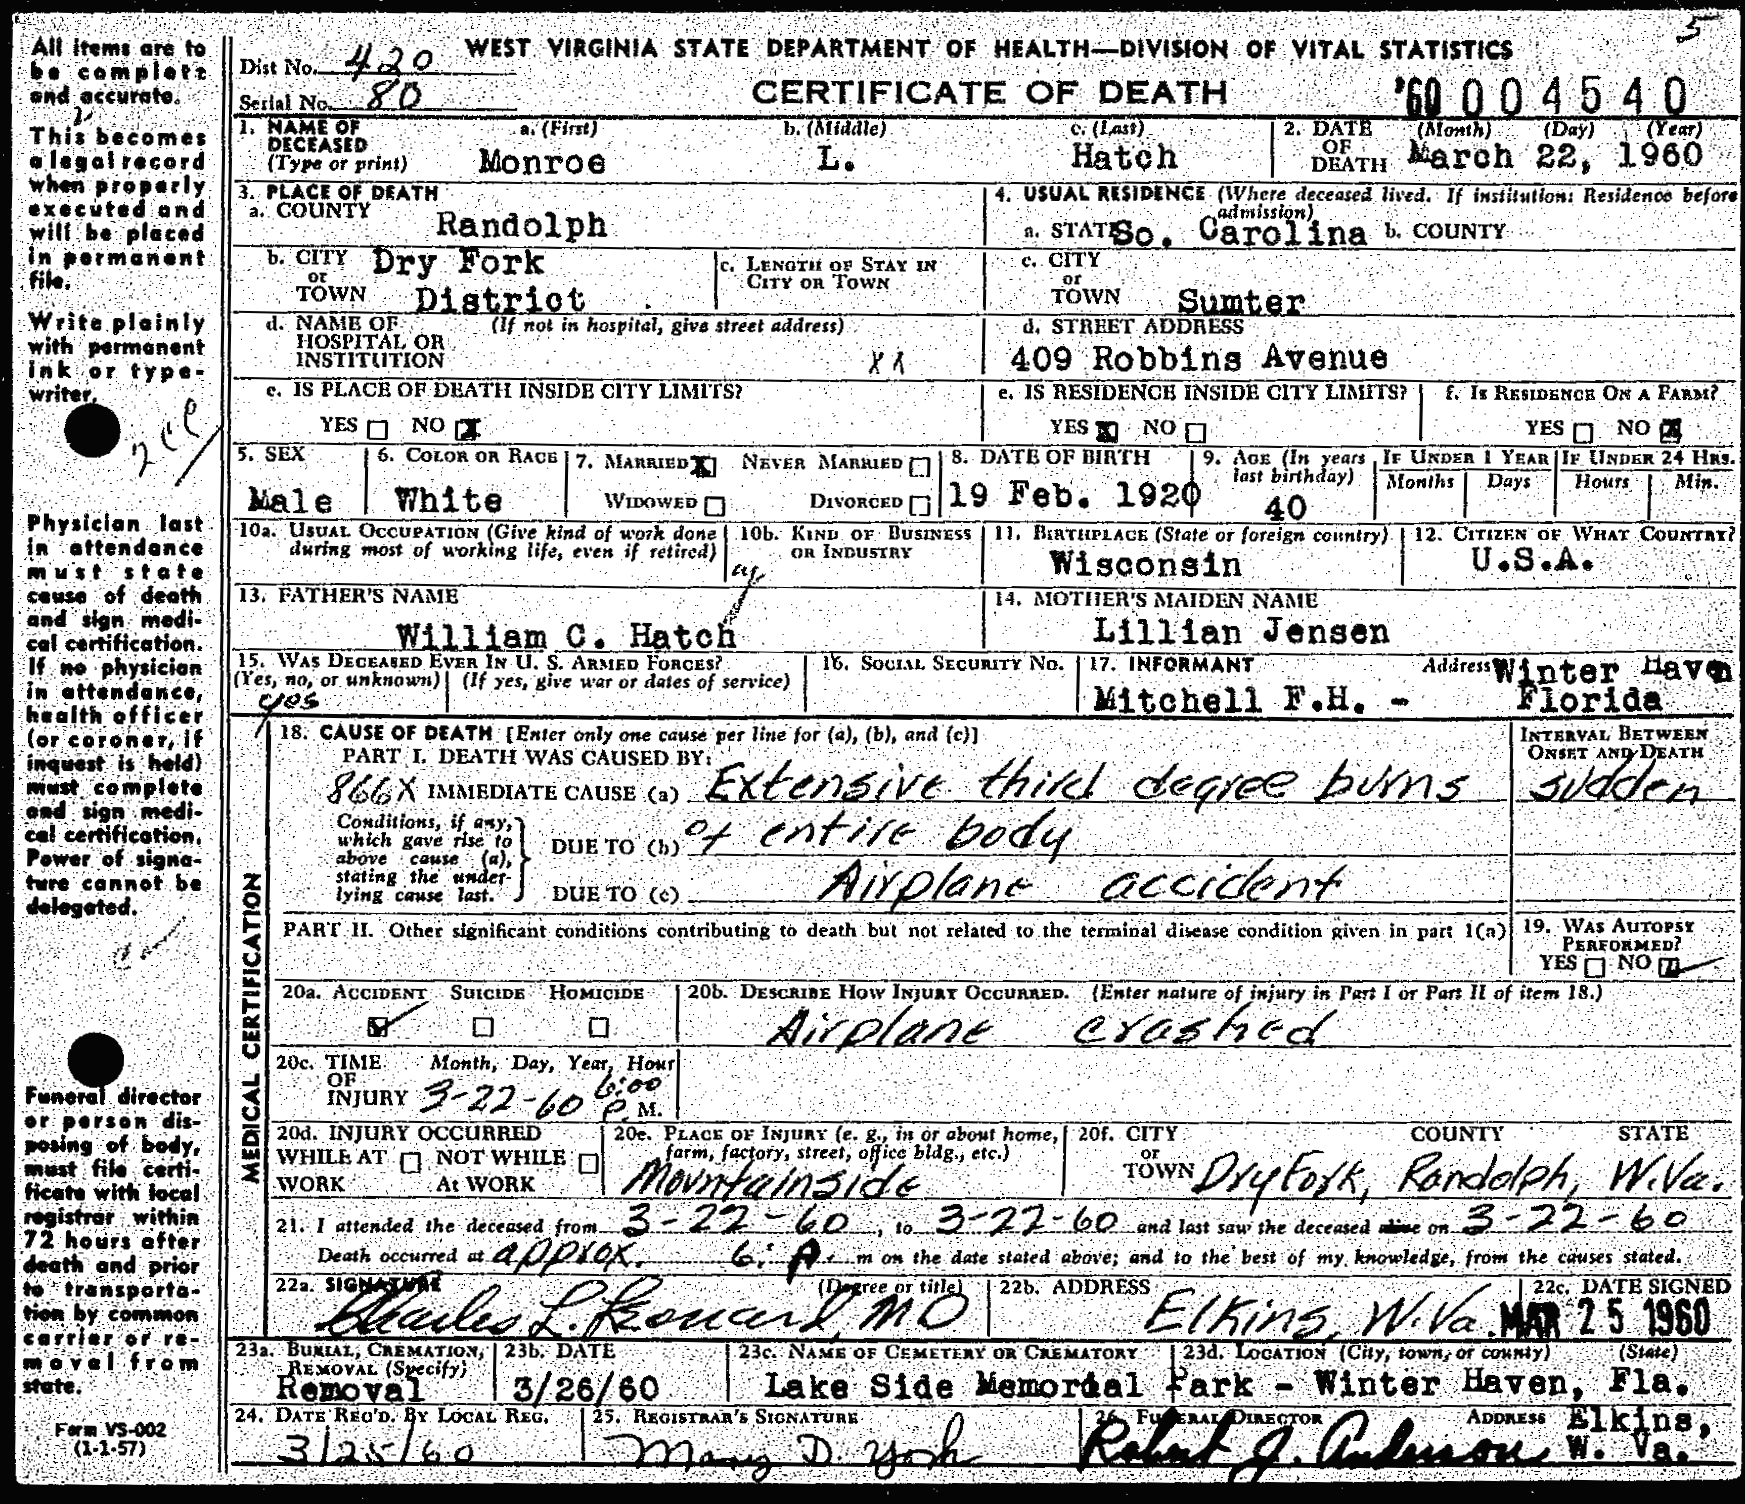 5
All items are to
be complete
and accurate.
This becomes
a legal record
when properly
executed and
will be placed
in permanent
file.
Write plainly
with permanent
ink or type-
writer.
Physician last
in attendance
must state
cause of death
and sign medi-
cal certification.
If no physician
in attendance,
health officer
(or coroner, if
inquest is held)
must complete
and sign medi-
cal certification.
Power of signa-
ture cannot be
delegated.
Funeral director
or person dis-
posing of body,
must file certi-
ficate with local
registrar within
72 hours after
death and prior
to transporta-
tion by common
carrier or re-
moval from
state.
Form VS-002
(1-1-57)
Dist No. 420 WEST VIRGINIA STATE DEPARTMENT OF HEALTH—DIVISION OF VITAL STATISTICS
Serial No. 80 CERTIFICATE OF DEATH '60 004540
1. NAME OF DECEASED (Type or print) a. (First) Monroe b. (Middle) L. c. (Last) Hatch
2. DATE OF DEATH (Month) (Day) (Year) March 22, 1960
3. PLACE OF DEATH
a. COUNTY Randolph
4. USUAL RESIDENCE (Where deceased lived. If institution: Residence before admission)
a. STATE So. Carolina b. COUNTY
b. CITY or TOWN Dry Fork District
c. LENGTH OF STAY IN CITY OR TOWN
c. CITY or TOWN Sumter
d. NAME OF HOSPITAL OR INSTITUTION (If not in hospital, give street address)
d. STREET ADDRESS 409 Robbins Avenue
e. IS PLACE OF DEATH INSIDE CITY LIMITS? YES NO X
e. IS RESIDENCE INSIDE CITY LIMITS? YES X NO
f. IS RESIDENCE ON A FARM? YES NO X
5. SEX Male
6. COLOR OR RACE White
7. MARRIED X NEVER MARRIED
WIDOWED DIVORCED
8. DATE OF BIRTH 19 Feb. 1920
9. AGE (In years last birthday) 40
IF UNDER 1 YEAR Months Days
IF UNDER 24 HRS. Hours Min.
10a. USUAL OCCUPATION (Give kind of work done during most of working life, even if retired)
10b. KIND OF BUSINESS OR INDUSTRY
11. BIRTHPLACE (State or foreign country) Wisconsin
12. CITIZEN OF WHAT COUNTRY? U.S.A.
13. FATHER'S NAME William C. Hatch
14. MOTHER'S MAIDEN NAME Lillian Jensen
15. WAS DECEASED EVER IN U. S. ARMED FORCES?
(Yes, no, or unknown) yes (If yes, give war or dates of service)
16. SOCIAL SECURITY NO.
17. INFORMANT Mitchell F.H. - Address Winter Haven Florida
MEDICAL CERTIFICATION
18. CAUSE OF DEATH [Enter only one cause per line for (a), (b), and (c)]
INTERVAL BETWEEN ONSET AND DEATH
PART I. DEATH WAS CAUSED BY:
866X IMMEDIATE CAUSE (a) Extensive third degree burns sudden
Conditions, if any, which gave rise to above cause (a), stating the underlying cause last.
DUE TO (b) of entire body
DUE TO (c) Airplane accident
PART II. Other significant conditions contributing to death but not related to the terminal disease condition given in part 1(a)
19. WAS AUTOPSY PERFORMED? YES NO
20a. ACCIDENT SUICIDE HOMICIDE
20b. DESCRIBE HOW INJURY OCCURRED. (Enter nature of injury in Part I or Part II of item 18.)
Airplane crashed
20c. TIME OF INJURY Month, Day, Year, Hour 3-22-60 6:00 P. M.
20d. INJURY OCCURRED WHILE AT WORK NOT WHILE At WORK
20e. PLACE OF INJURY (e. g., in or about home, farm, factory, street, office bldg., etc.) Mountainside
20f. CITY or TOWN COUNTY STATE Dry Fork, Randolph, W.Va.
21. I attended the deceased from 3-22-60, to 3-22-60 and last saw the deceased alive on 3-22-60
Death occurred at approx. 6: P. m on the date stated above; and to the best of my knowledge, from the causes stated.
22a. SIGNATURE (Degree or title) Charles L. MD
22b. ADDRESS Elkins, W.Va.
22c. DATE SIGNED MAR 25 1960
23a. BURIAL, CREMATION, REMOVAL (Specify) Removal
23b. DATE 3/26/60
23c. NAME OF CEMETERY OR CREMATORY Lake Side Memorial Park -
23d. LOCATION (City, town, or county) (State) Winter Haven, Fla.
24. DATE REC'D. BY LOCAL REG. 3/25/60
25. REGISTRAR'S SIGNATURE Mary D. York
26. FUNERAL DIRECTOR Robert J. Anderson ADDRESS Elkins, W. Va.